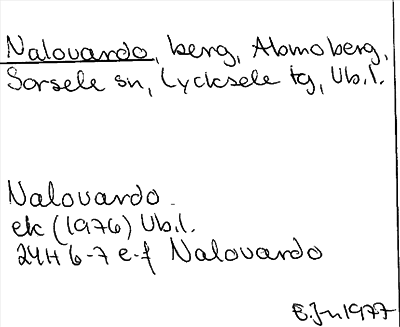 Nalovardo, berg, Abmoberg,
Sorsele sn, Lycksele tg, Vb.l.
Nalovardo.
ek (1976) Vb.l.
24H 6-7 e-f Nalovardo
E.Jn 1977